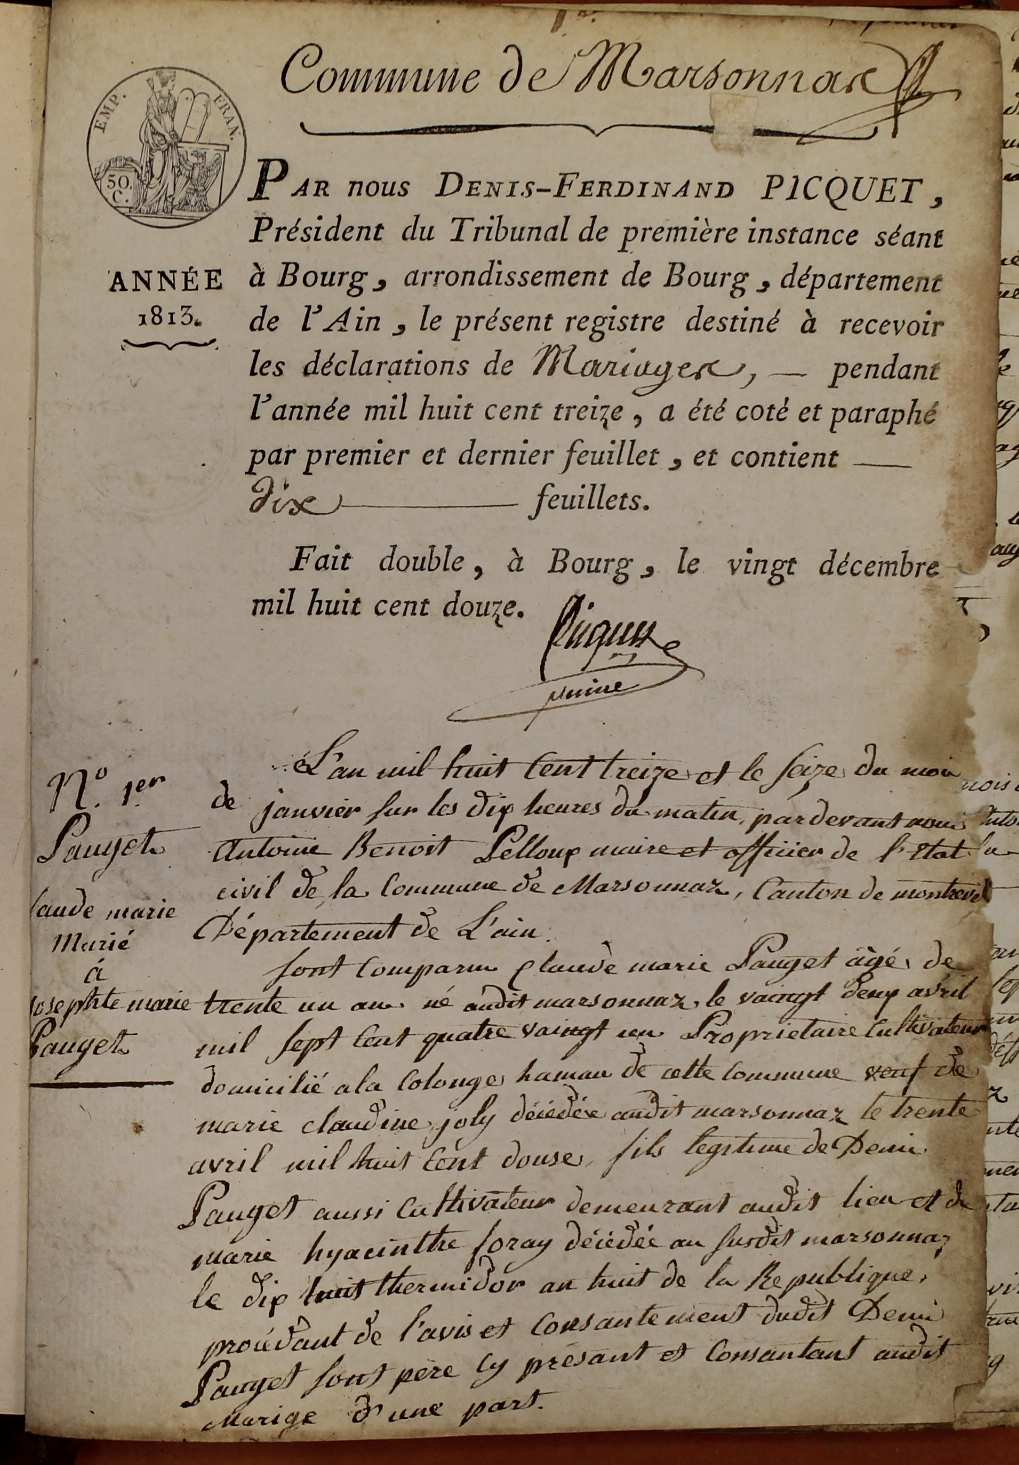 Commune de Marsonnas
EMP. FRAN.
50.
C.
PAR nous DENIS-FERDINAND PICQUET,
Président du Tribunal de première instance séant
ANNÉE
1813.
à Bourg, arrondissement de Bourg, département
de l'Ain, le présent registre destiné à recevoir
les déclarations de Mariages, — pendant
l'année mil huit cent treize, a été coté et paraphé
par premier et dernier feuillet, et contient —
dix — feuillets.
Fait double, à Bourg, le vingt décembre
mil huit cent douze.
Picquet
N.° 1.er
Pauget
laude marie
Marié
á
josephte marie
Pauget
L'an mil huit Cent treize et le seize du moi
de janvier sur les dix heures du matin, pardevant nous
Antoine Benoit Pelloux maire et officier de l'Etat
civil de la Commune de Marsonnaz, Canton de montrevel
Département de L'ain.
sont Comparu Claude marie Pauget âgé de
trente un an né audit marsonnaz le vaingt deux avril
mil sept Cent quatre vaingt un Propriétaire Cultivateur
domicilié a la Colonge hamau de cette Commune veuf de
marie claudine joly décédée audit marsonnaz le trente
avril mil huit Cent douse, fils legitime de Deni
Pauget aussi Cultivateur demeurant audit lieu et de
marie hyacinthe foray décédée au susdit marsonnaz
le dix huit thermidor an huit de la Republique,
procédant de l'avis et Consantement dudit Deni
Pauget sont père Cy présant et Consantant audit
Marige d'une part.